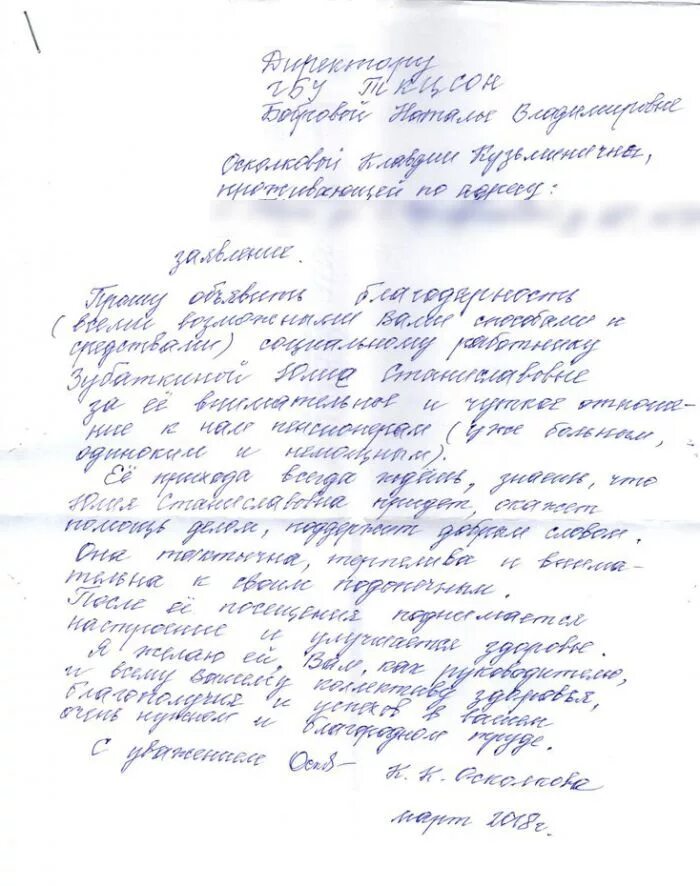 Директору
ГБУ ТКЦСОН
Бобровой Наталье Владимировне
Осколковой Клавдии Кузьминичны,
проживающей по адресу:
заявление.
Прошу объявить благодарность
(всеми возможными Вами способами и
средствами) социальному работнику
Зубаткиной Юлие Станиславовне
за её внимательное и чуткое отноше-
ние к нам пенсионерам (уже больным,
одиноким и немощным).
Её прихода всегда ждёшь, знаешь, что
Юлия Станиславовна придет, окажет
помощь делом, поддержит добрым словом.
Она тактична, терпелива и внима-
тельна к своим подопечным.
После её посещения поднимается
настроение и улучшается здоровье.
Я желаю ей, Вам, как руководителю,
и всему Вашему коллективу здоровья,
благополучия и успехов в вашем
очень нужном и благородном труде.
С уважением Оск
К. К. Осколкова
март 2018г.